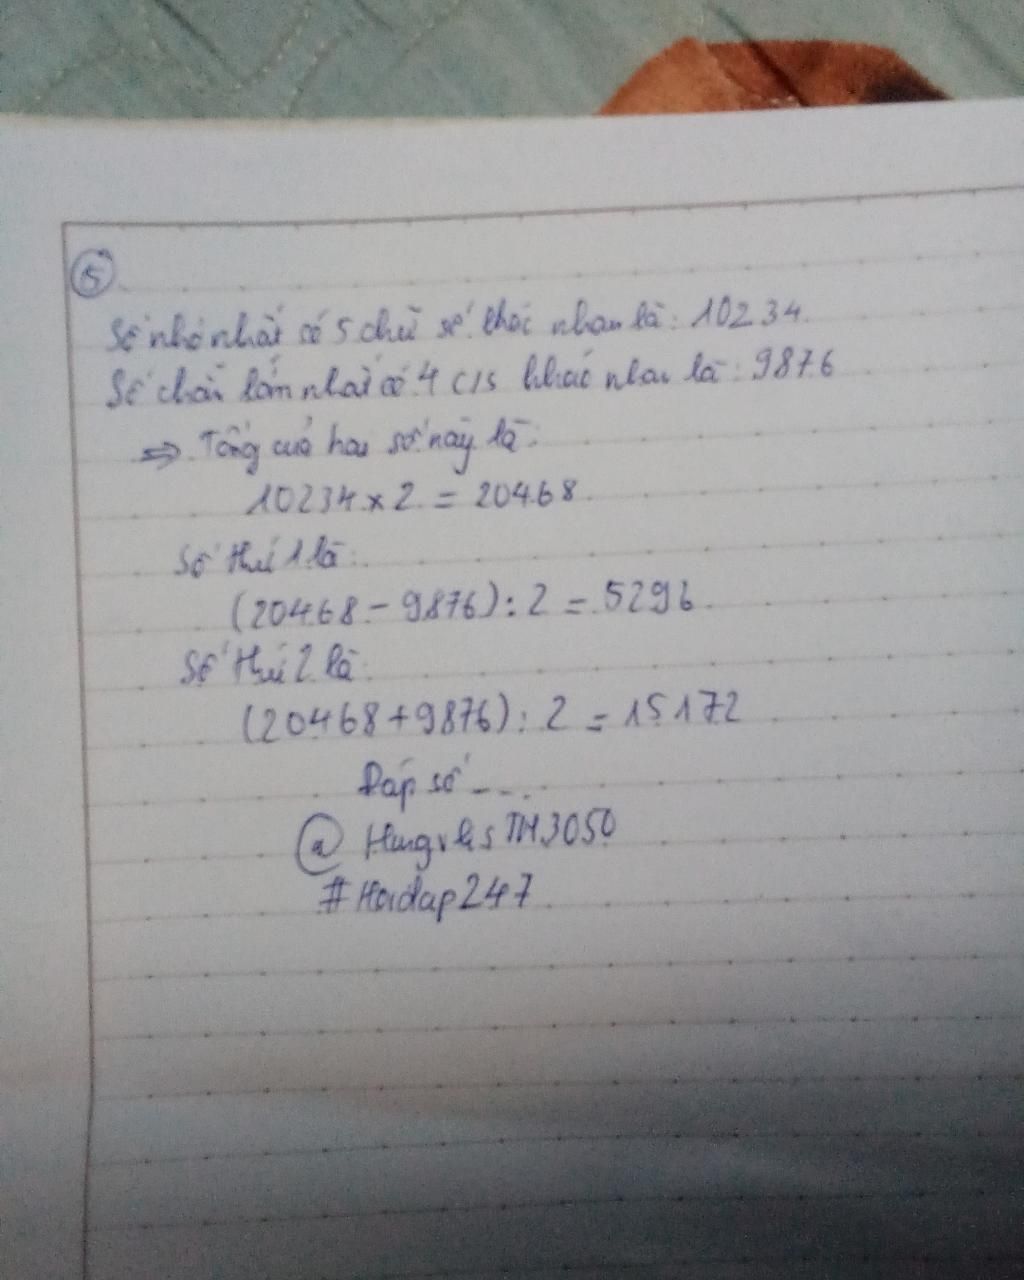 5
Số nhỏ nhất có 5 chữ số khác nhau là: 10234
Số chẵn lớn nhất có 4 c/s khác nhau là: 9876
=> Tổng của hai số này là:
10234 x 2 = 20468
Số thứ 1 là:
(20468 - 9876) : 2 = 5296
Số thứ 2 là:
(20468 + 9876) : 2 = 15172
Đáp số ...
#Hoidap247